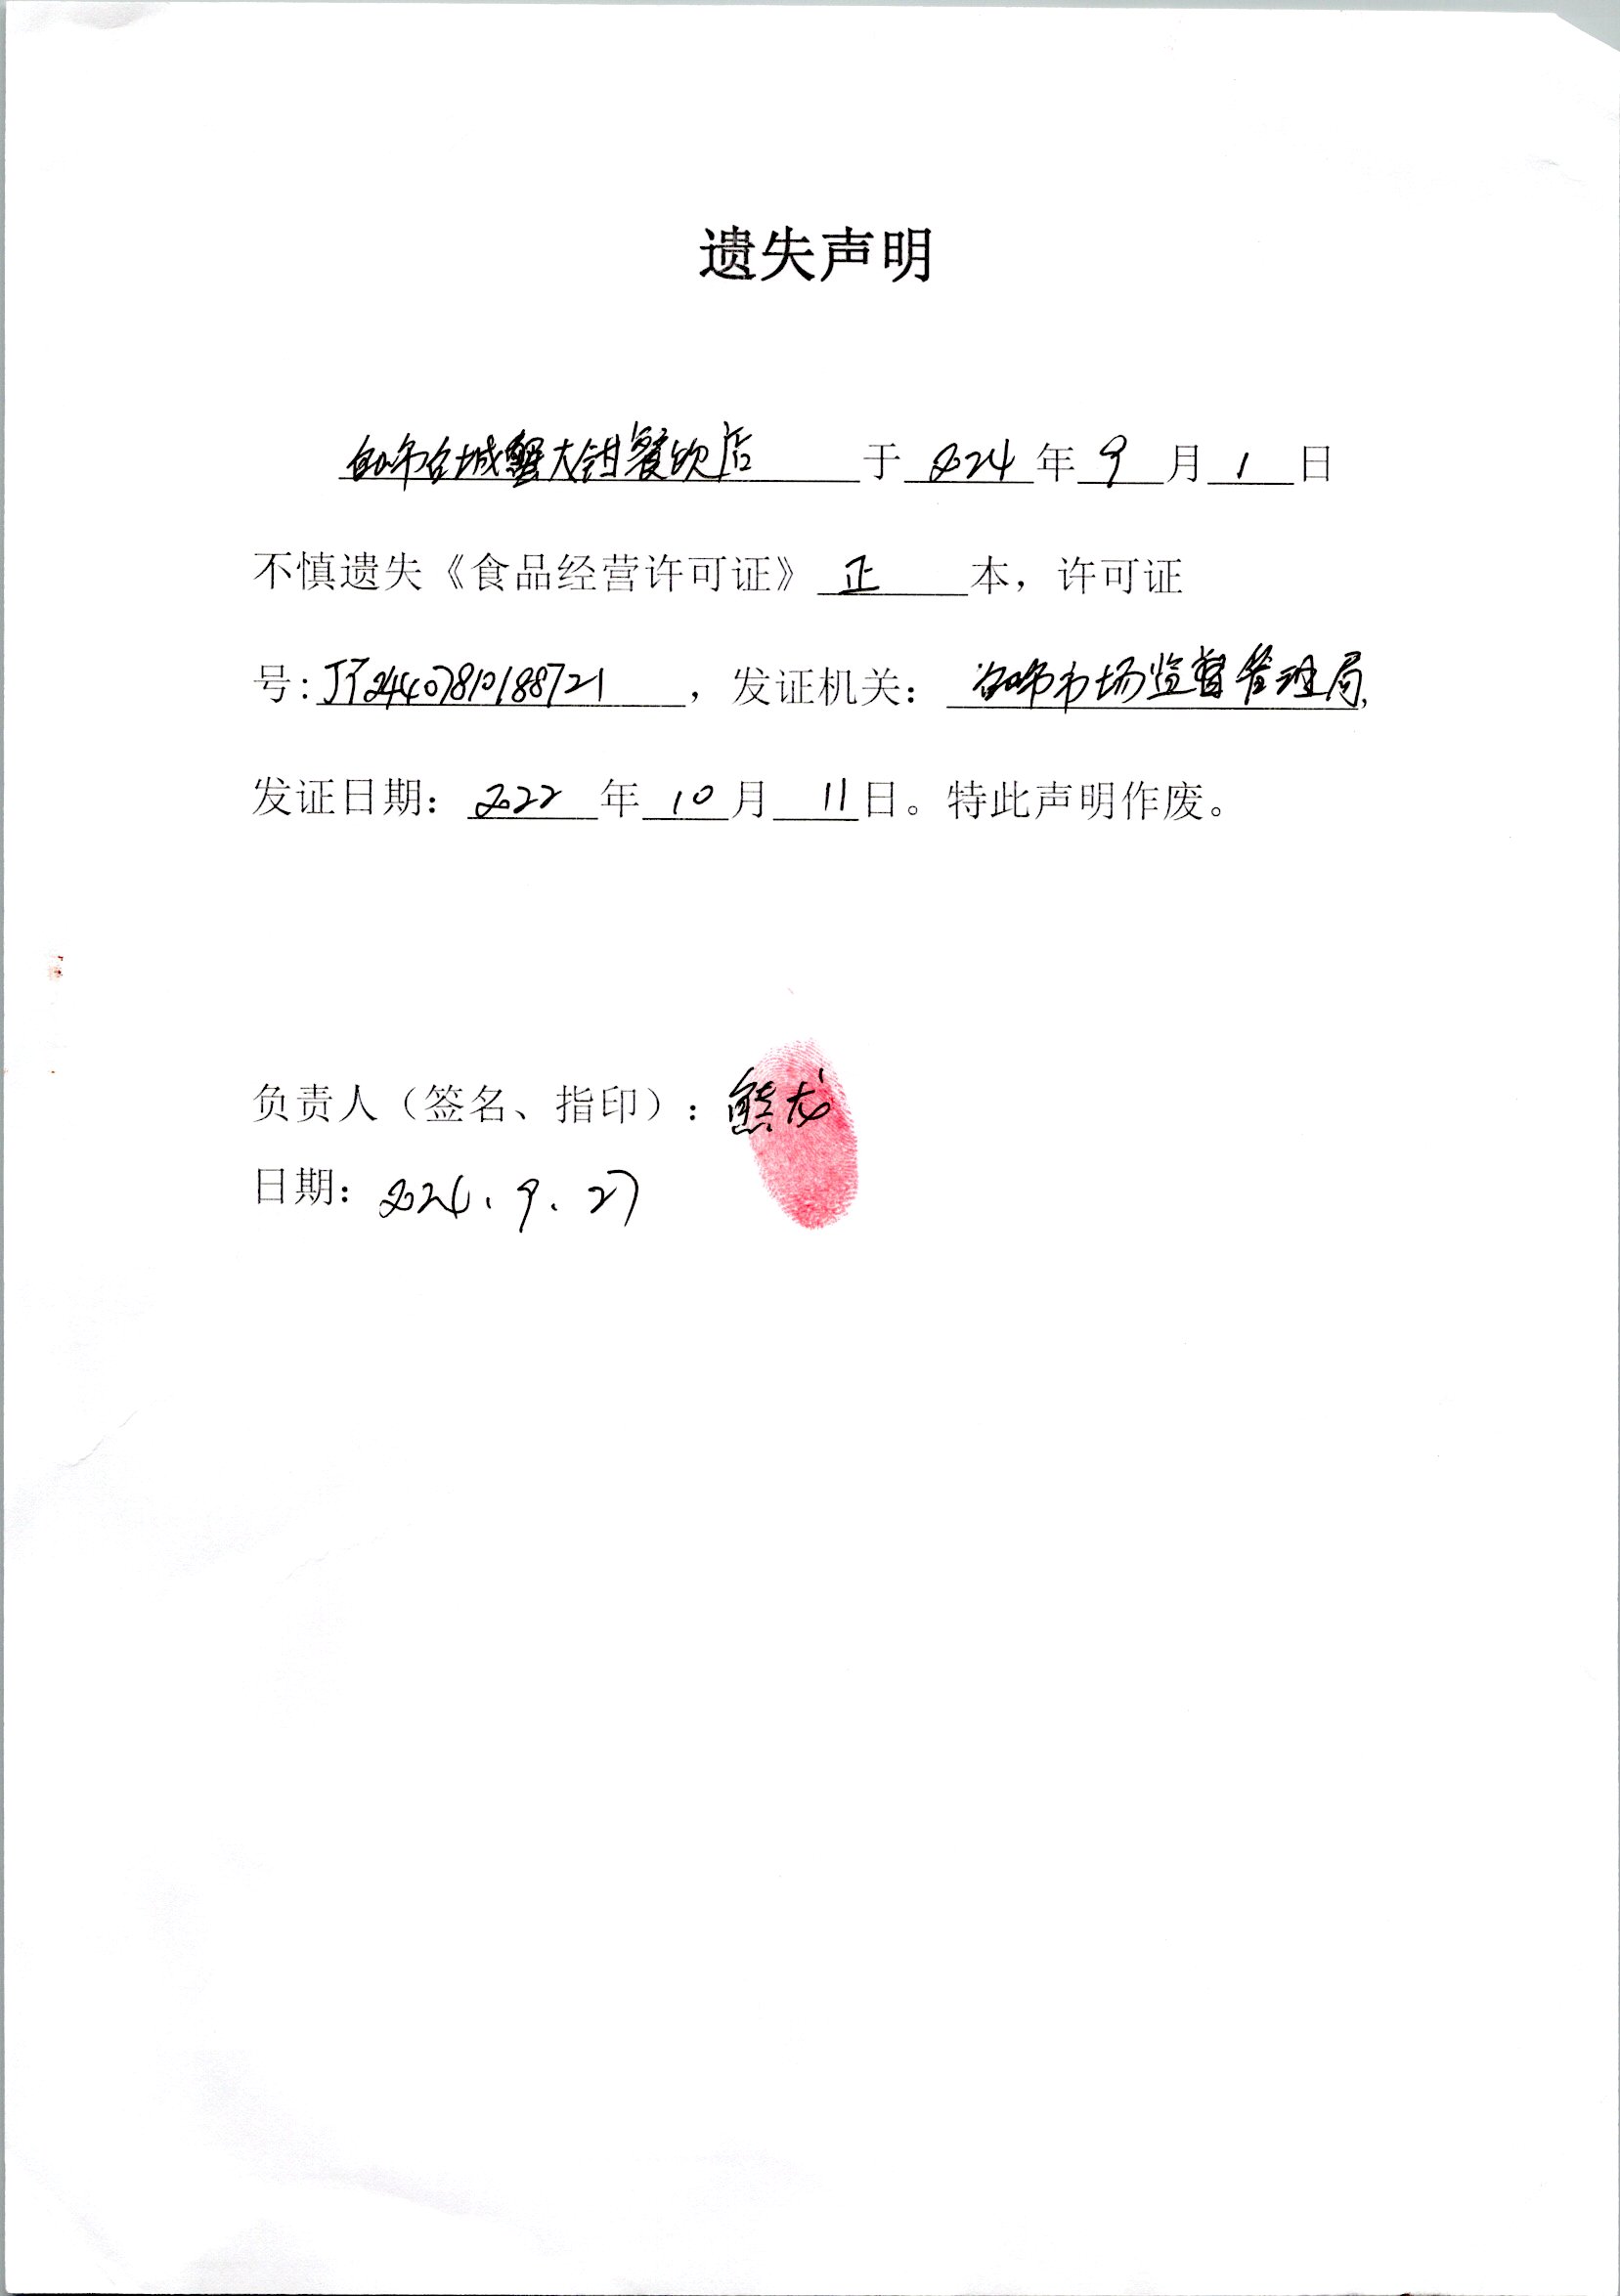 遗失声明
台山市台城蟹大钳餐饮店于2024年9月1日
不慎遗失《食品经营许可证》正本，许可证
号:JY24407810188721，发证机关：台山市市场监督管理局,
发证日期：2022年10月11日。特此声明作废。
负责人（签名、指印）：熊龙
日期：2024、9、27